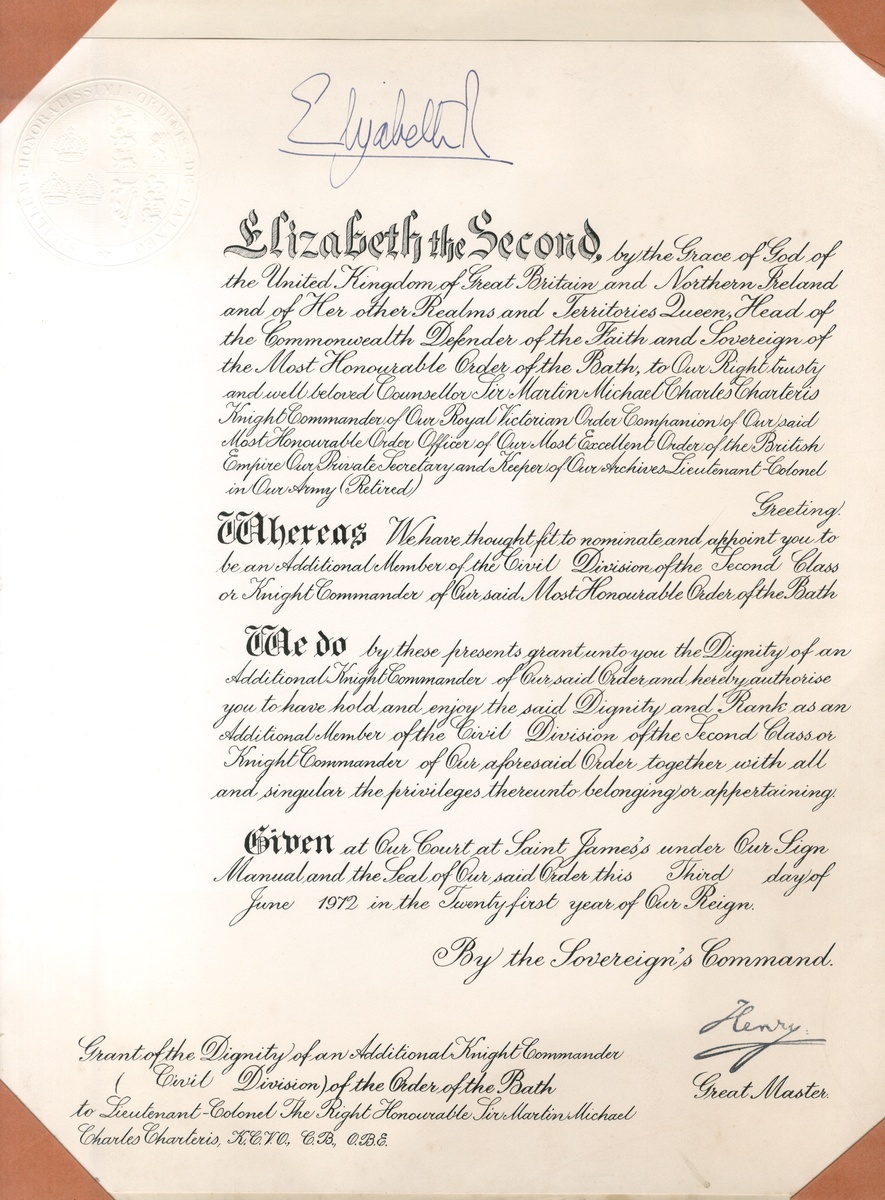 HONORATISSIMI · ORDINIS · DE
Elizabeth R
Elizabeth the Second, by the Grace of God of
the United Kingdom of Great Britain and Northern Ireland
and of Her other Realms and Territories Queen, Head of
the Commonwealth Defender of the Faith and Sovereign of
the Most Honourable Order of the Bath, to Our Right trusty
and well beloved Counsellor Sir Martin Michael Charles Charteris
Knight Commander of Our Royal Victorian Order Companion of Our said
Most Honourable Order Officer of Our Most Excellent Order of the British
Empire Our Private Secretary and Keeper of Our Archives Lieutenant-Colonel
in Our Army (Retired)
Greeting.
Whereas We have thought fit to nominate and appoint you to
be an Additional Member of the Civil Division of the Second Class
or Knight Commander of Our said Most Honourable Order of the Bath
We do by these presents grant unto you the Dignity of an
Additional Knight Commander of Our said Order and hereby authorise
you to have hold and enjoy the said Dignity and Rank as an
Additional Member of the Civil Division of the Second Class or
Knight Commander of Our aforesaid Order together with all
and singular the privileges thereunto belonging or appertaining.
Given at Our Court at Saint James's under Our Sign
Manual and the Seal of Our said Order this Third day of
June 1972 in the Twenty first year of Our Reign.
By the Sovereign's Command.
Henry.
Great Master.
Grant of the Dignity of an Additional Knight Commander
( Civil Division) of the Order of the Bath
to Lieutenant-Colonel The Right Honourable Sir Martin Michael
Charles Charteris, K.C.V.O., C.B., O.B.E.